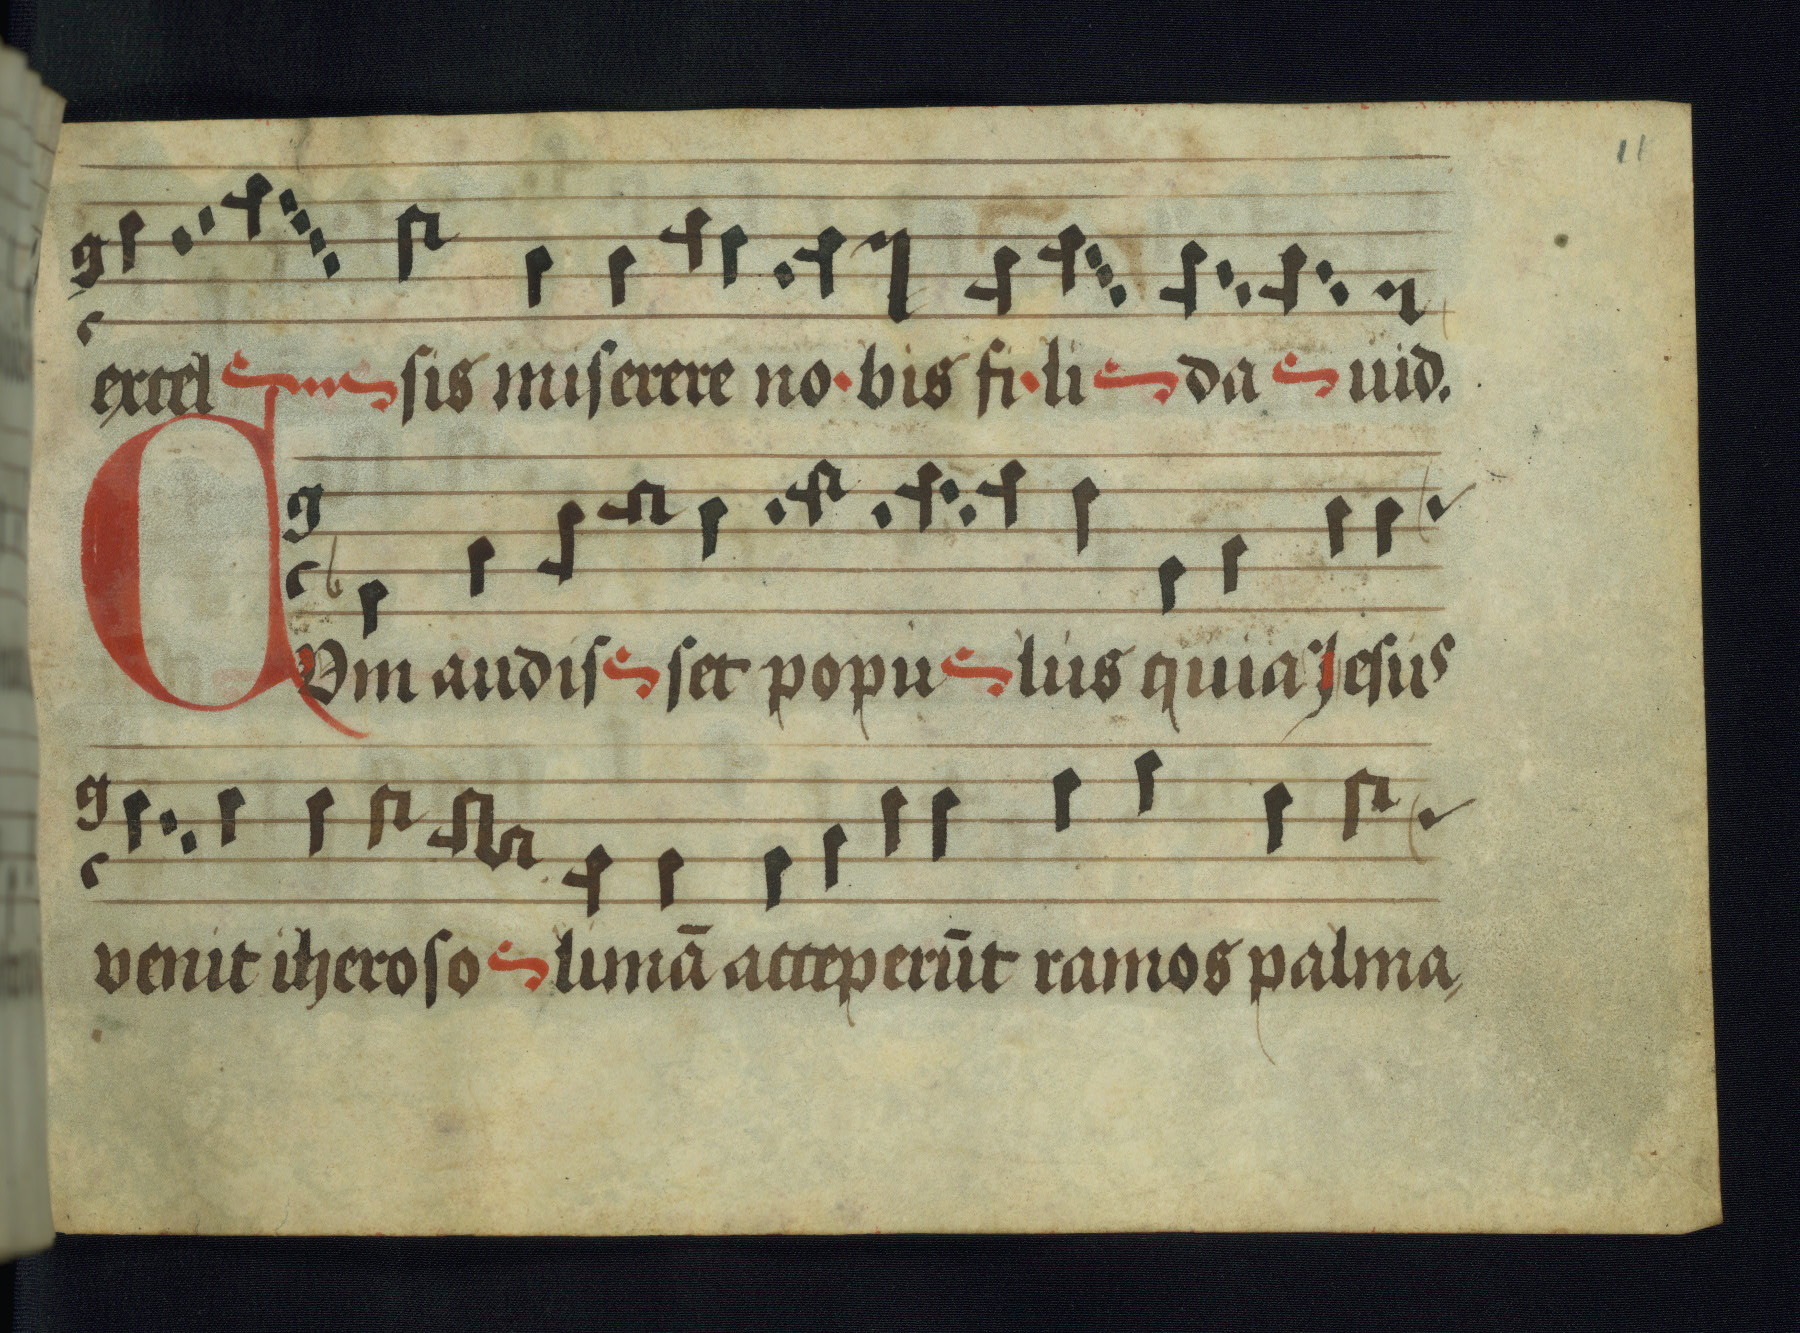 11
excel sis miserere no bis fi li da uid.
CVm audis set popu lus quia Jesus
venit iheroso limā acceperūt ramos palma